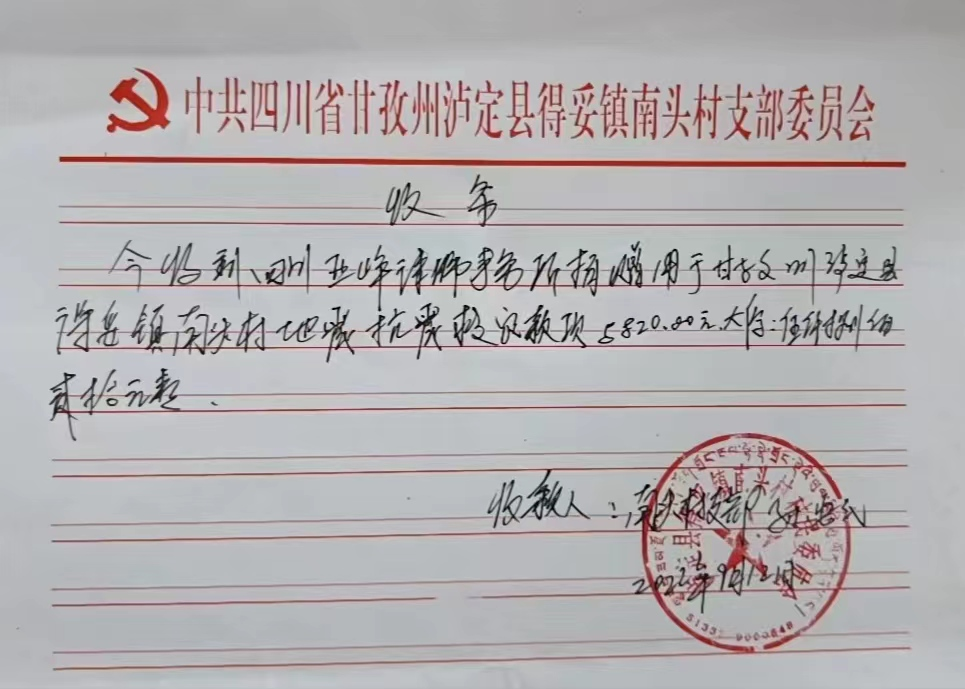 中共四川省甘孜州泸定县得妥镇南头村支部委员会
收条
今收到四川亚峰律师事务所捐赠用于甘孜州泸定县
得妥镇南头村地震抗震救灾款项5820.00元.大写:伍仟捌佰
贰拾元整.
收款人:南头村支部
2022年9月12日